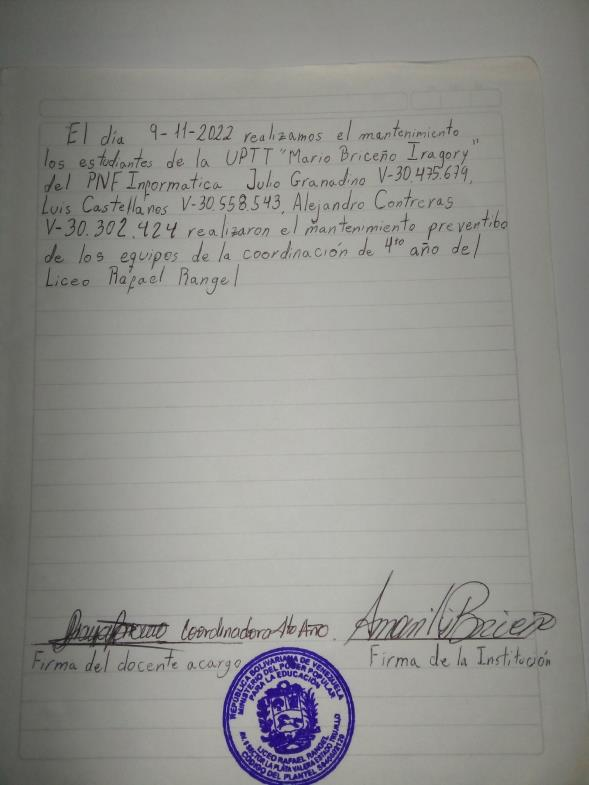 El día 9-11-2022 realizamos el mantenimiento
los estudiantes de la UPTT "Mario Briceño Iragory"
del PNF Informatica Julio Granadino V-30.475.679,
Luis Castellanos V-30.558.543, Alejandro Contreras
V-30.302.424 realizaron el mantenimiento preventibo
de los equipos de la coordinación de 4to año del
Liceo Rafael Rangel
Coordinadora 4to Año.
Briceño
Firma del docente acargo
Firma de la Institución
REPÚBLICA BOLIVARIANA DE VENEZUELA
MINISTERIO DEL PODER POPULAR
PARA LA EDUCACIÓN
LICEO RAFAEL RANGEL
LA PLATA VALERA ESTADO TRUJILLO
CÓDIGO DEL PLANTEL